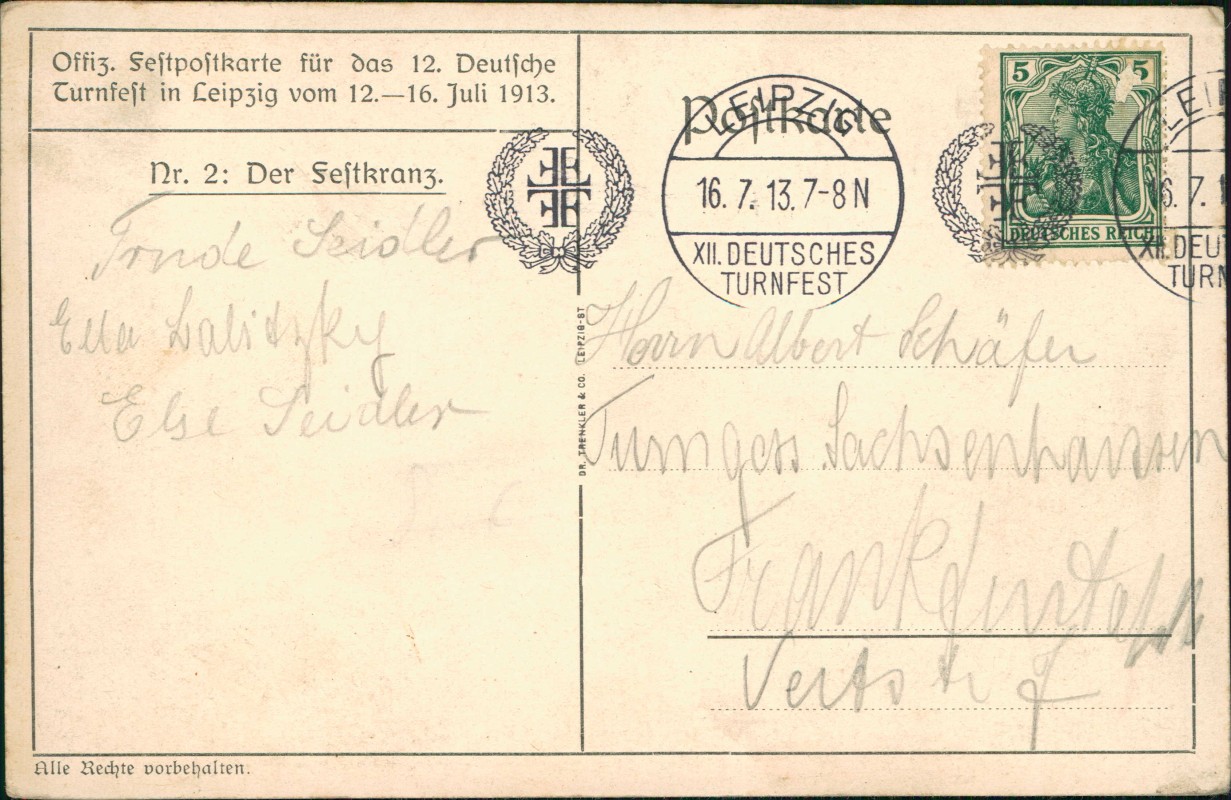 Offiz. Festpostkarte für das 12. Deutsche
Turnfest in Leipzig vom 12.—16. Juli 1913.
Nr. 2: Der Festkranz.
Trude Seidler
Ella Lalitzky
Else Seidler
Alle Rechte vorbehalten.
DR. TRENKLER & CO. LEIPZIG-ST
Postkarte
LEIPZIG
16. 7. 13. 7-8 N
XII. DEUTSCHES
TURNFEST
5 5
DEUTSCHES REICH
LEI
16. 7. 1
XII. DEU
TURN
Herrn Albert Schäfer
Turngess Sachsenhausen
Frankfurt